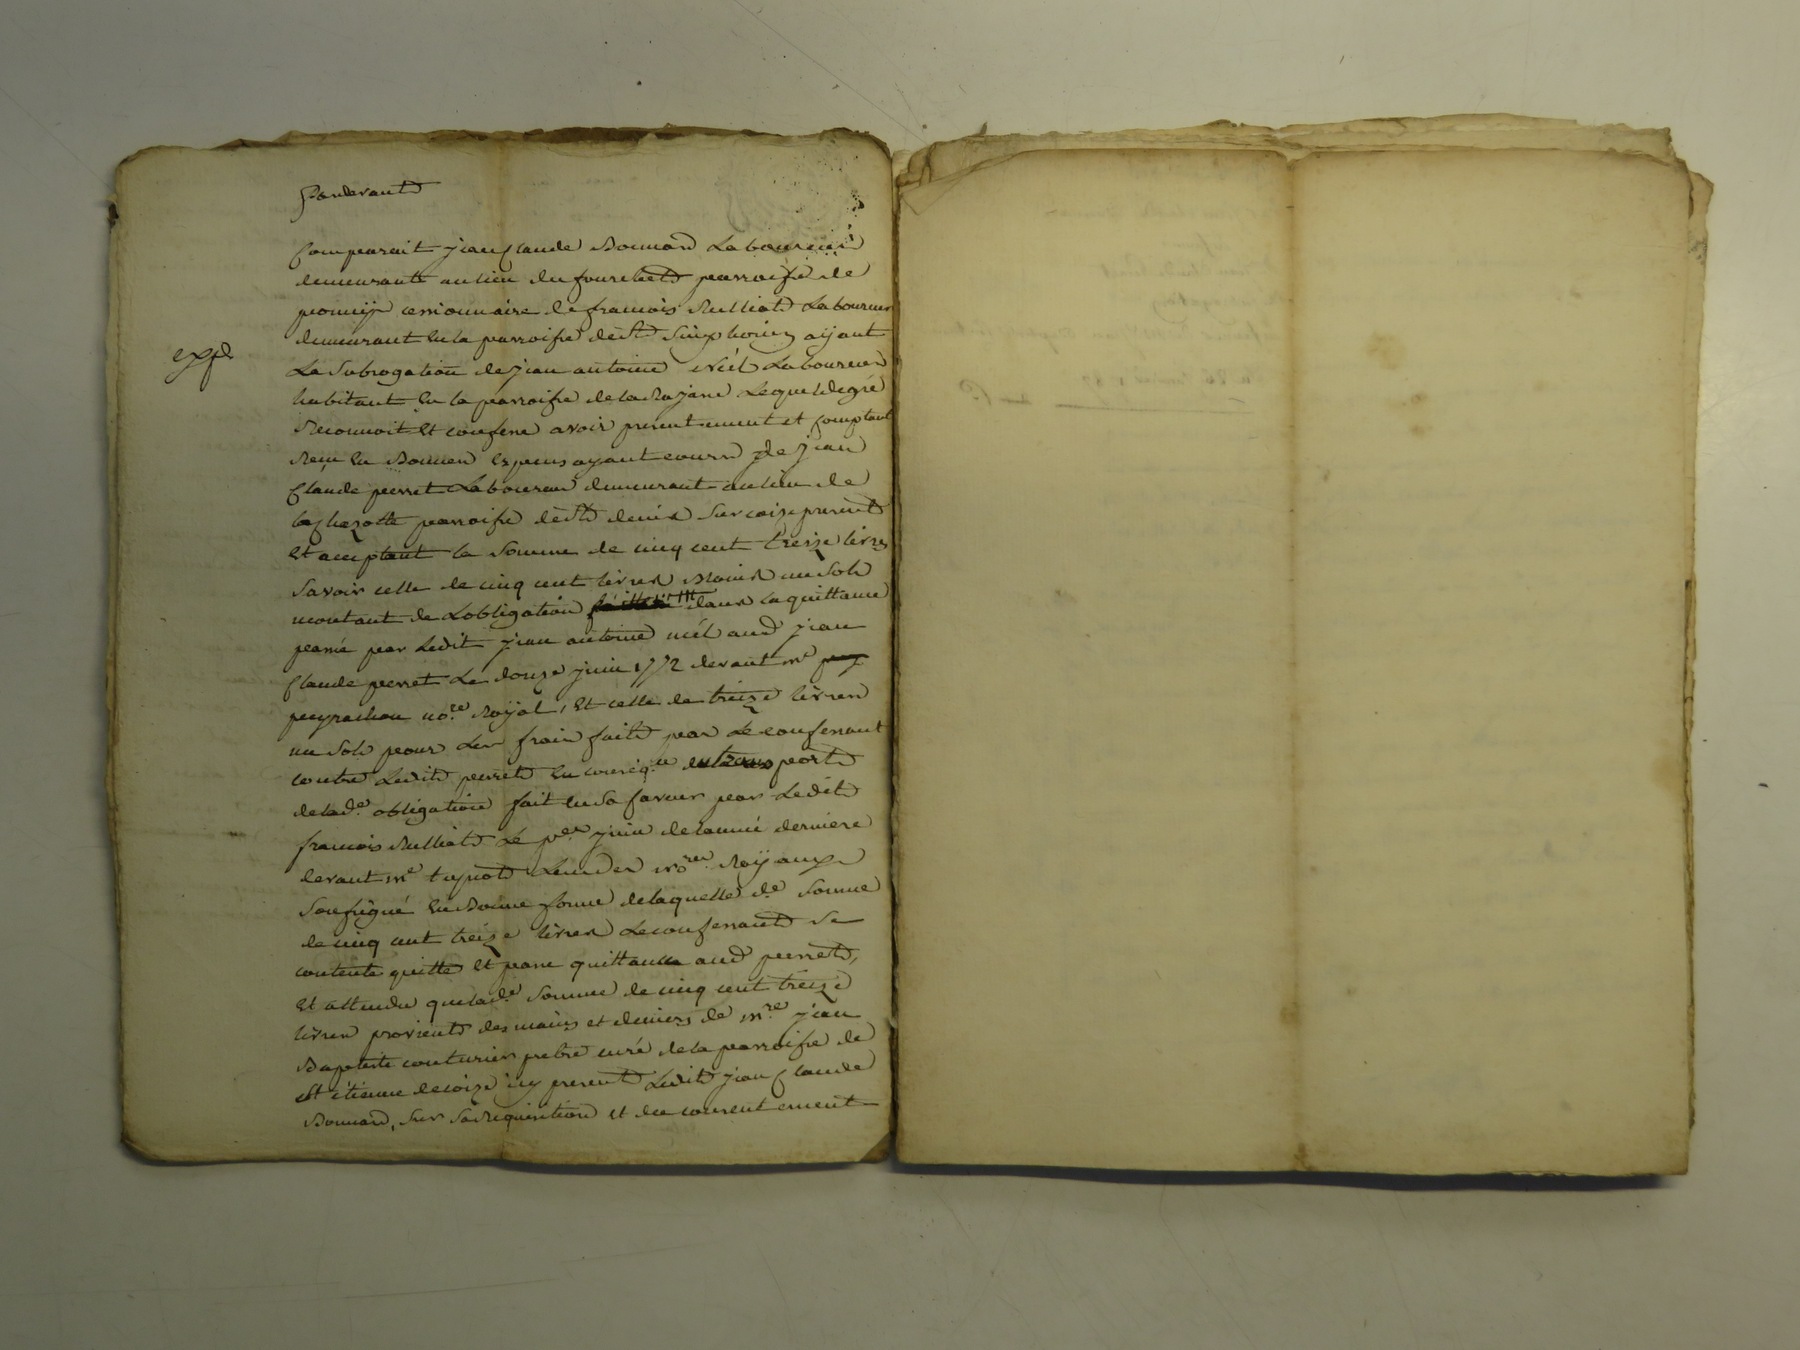 Pardevant
Comparait jean Claude Bonnard Laboureur
demeurant au lieu du fourchet parroisse de
pomeÿs cessionnaire de francois Rulliat Laboureur
demeurant en la parroisse de st Simphorien ayant
La Subrogation de jean antoine Néel Laboureur
habitant en la parroisse de la Rajasse Lequel de gré
Reconnoit et confesse avoir presentement et comptant
Reçu en Bonnes especes ayant cours de jean
Claude perret Laboureur demeurant au lieu de
la chazotte parroisse de st denis Sur coize present
Et acceptant la Somme de cinq cent treize livres
Savoir celle de cinq cent livres Moins un Sols
montant de L'obligation dans la quittance
passée par Ledit jean antoine néel aud jean
Claude perret Le douze juin 1772 devant me
peyrachon nore Royal, Et celle de treize livres
un Sols pour Les frais faits par Le confessant
contre Ledit perret En conseqce du transport
de lade obligation fait en Sa faveur par Ledit
francois Rulliat Le per juin de l'année derniere
devant me L'un des nores Royaux
Soussigné En Bonne forme de laquelle de Somme
de cinq cent treize livres Le confessant Se
contente quitte Et passe quittance aud perret,
Et attendu que lade Somme de cinq cent treize
livres provient des mains et deniers de mre jean
Baptiste couturier prebre curé de la parroisse de
st étienne de coize icy present Ledit jean Claude
Bonnard, Sur Sa Requisition et du consentement
expé